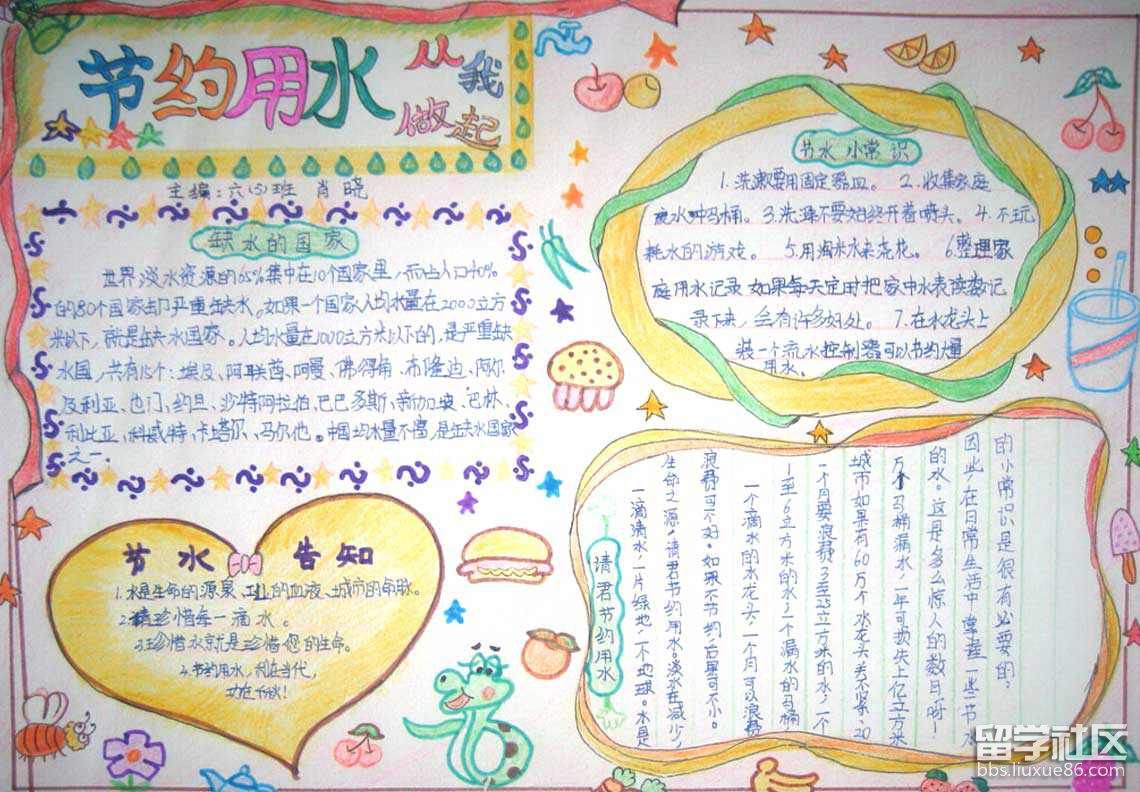 节约用水
从我
做起
主编:六(四)班 肖晓
缺水的国家
世界淡水资源的65%集中在10个国家里,而占人口40%
的80个国家却严重缺水。如果一个国家人均水量在2000立方
米以下,就是缺水国家。人均水量在1000立方米以下的,是严重缺
水国,共有15个:埃及、阿联酋、阿曼、佛得角、布隆迪、阿尔
及利亚、也门、约旦、沙特阿拉伯、巴巴多斯、新加坡、巴林、
利比亚、科威特、卡塔尔、马尔他。中国均水量不富,是缺水国家
之一.
节水 告知
1.水是生命的源泉、工业的血液、城市的命脉。
2.请珍惜每一滴水。
3.珍惜水就是珍惜您的生命。
4.节约用水,利在当代,
功在千秋!
节水小常识
1.洗漱要用固定器皿。 2.收集家庭
废水冲马桶。3.洗澡不要始终开着喷头。4.不玩
耗水的游戏。 5.用淘米水来浇花。 6.整理家
庭用水记录 如果每天定时把家中水表读数记
录下来,会有许多好处。 7.在水龙头上
装一个流水控制器可以节约大量
用水。
请君节约用水
一滴清水,一片绿地,一个地球。水是
生命之源,请君节约用水。淡水在减少,
浪费可不好。如果不节约,后果可不小。
一个滴水的水龙头,一个月可以浪费
1至6立方米的水,一个漏水的马桶
一个月要浪费3至25立方米的水,一个
城市如果有60万个水龙头关不紧、20
万个马桶漏水,一年可损失上亿立方米
的水。这是多么惊人的数目呀!
因此,在日常生活中掌握一些节水
的小常识是很有必要的:
留学社区
bbs.liuxue86.com